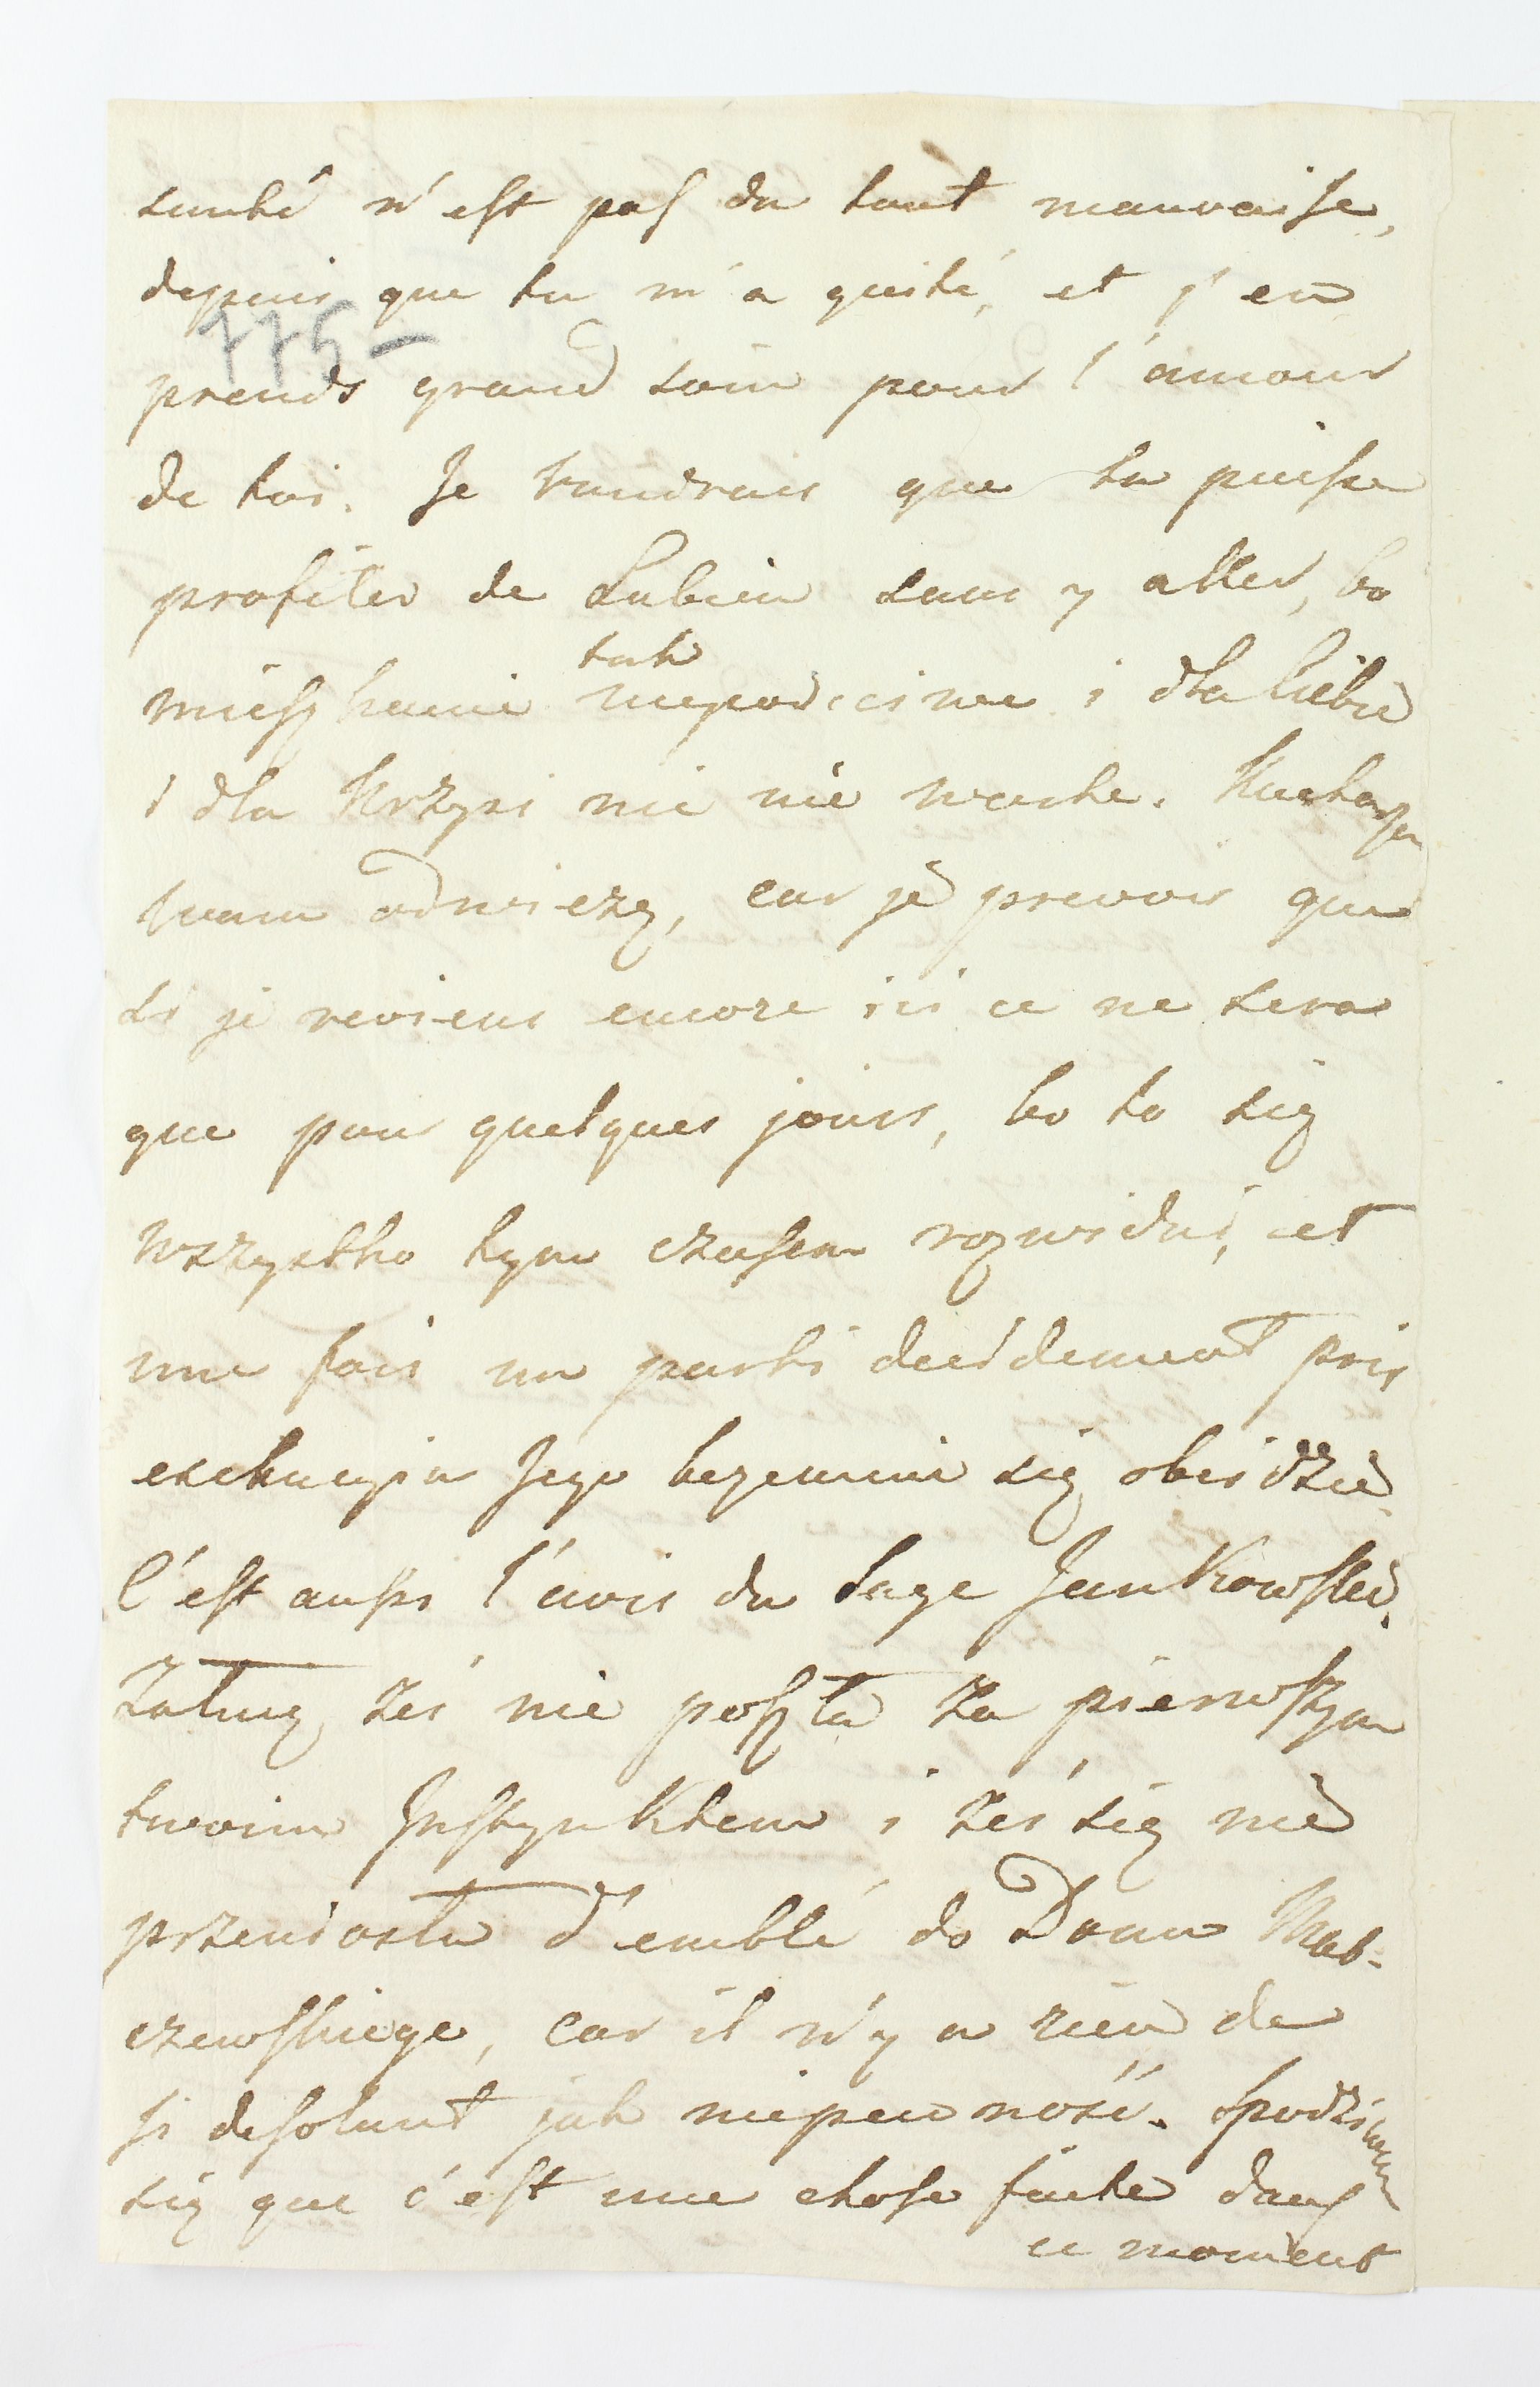 santé n'est pas du tout mauvaise,
depuis que tu m'a quité, et j'en
775 –
prends grand soin pour l'amour
de toi. Je vaudrais que tu puisse
profiter de Lubien sans y aller, bo
tak
mieszkanie niepoczciwe i dla Ciebie
i dla Krzysi nic nie warte.
wam odwiezę, car je prevois que
si je reviens encore ici ce ne sera
que pour quelques jours, bo to się
wszystko tym czasem rozwidni, et
une fois un parti decidement pris
exekucyia Jego bezemnie się obeidzie.
C'est aussi l'avis du Sage Jankowski.
Żałuię żeś nie poszła za pierwszym
twoim Instynktem i żeś się nie
przeniosła d'emblé do Domu
czewskiego, car il n'y a rien de
si desolant jak niepewność. Spodziewam
się que c'est une chose faite dans
ce moment